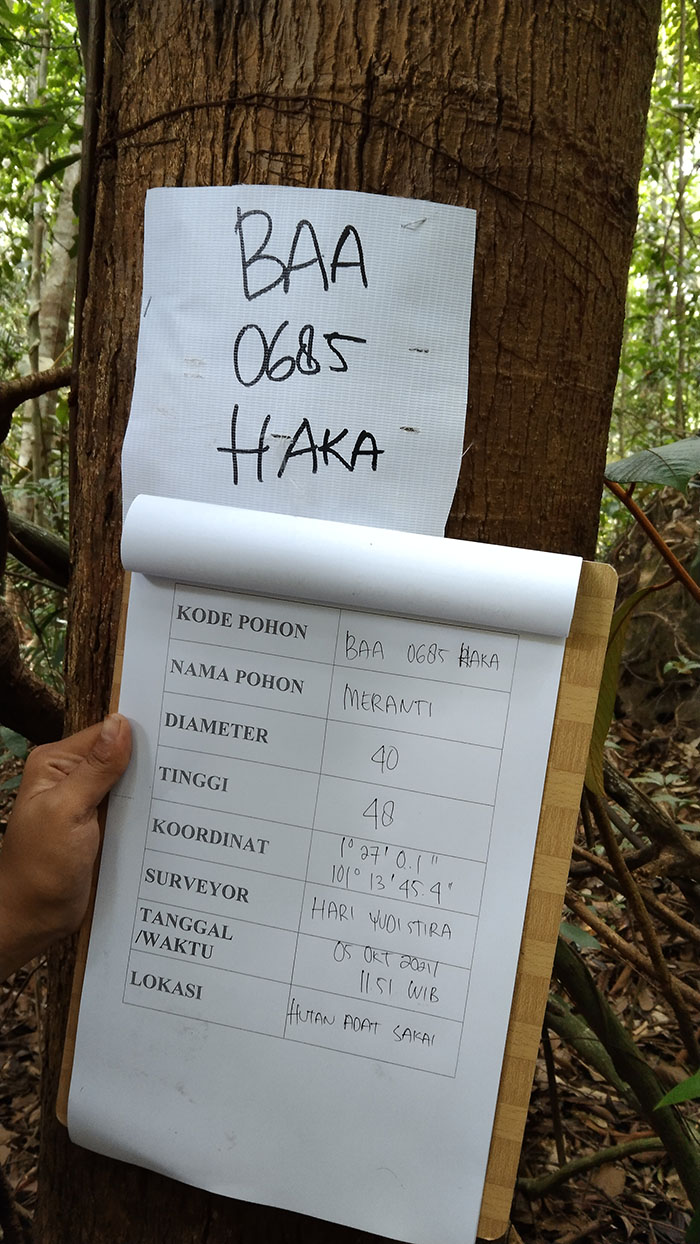 BAA
0685
HAKA
KODE POHON BAA 0685 HAKA
NAMA POHON MERANTI
DIAMETER 40
TINGGI 48
KOORDINAT 1° 27' 0.1"
101° 13' 45.4"
SURVEYOR HARI YUDISTIRA
TANGGAL 05 OKT 2021/
/WAKTU 11.51 WIB
LOKASI HUTAN ADAT SAKAI